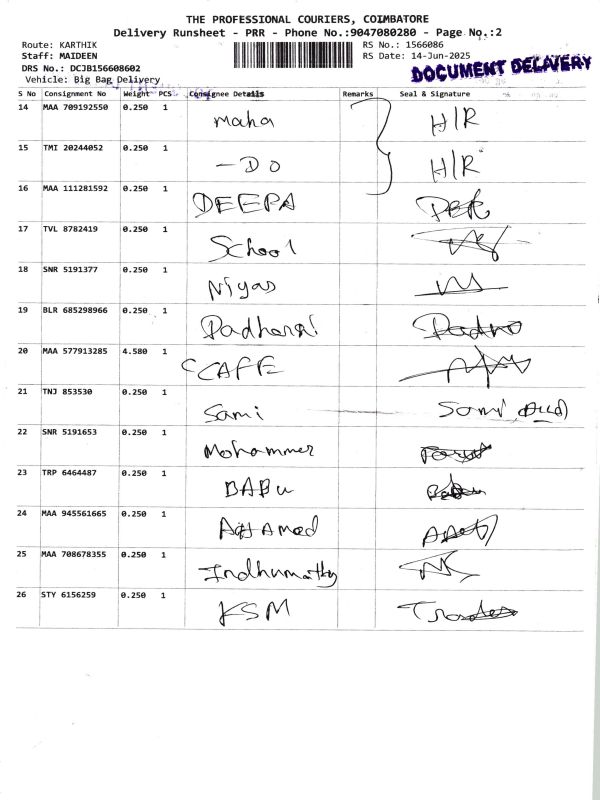 THE PROFESSIONAL COURIERS, COIMBATORE
Delivery Runsheet - PRR - Phone No.:9047080280 - Page No.:2
Route: KARTHIK RS No.: 1566086
Staff: MAIDEEN RS Date: 14-Jun-2025
DRS No.: DCJB156608602 DOCUMENT DELAVERY
Vehicle: Big Bag Delivery
S No Consignment No Weight PCS Consignee Details Remarks Seal & Signature
14 MAA 709192550 0.250 1 Maha H/R
15 TMI 20244052 0.250 1 — D O H/R
16 MAA 111281592 0.250 1 DEEPA
17 TVL 8782419 0.250 1 School
18 SNR 5191377 0.250 1 Niyas
19 BLR 685298966 0.250 1 Padharai
20 MAA 577913285 4.580 1 CAFE
21 TNJ 853530 0.250 1 Sami Sami
22 SNR 5191653 0.250 1 Mohammer
23 TRP 6464487 0.250 1 BABU
24 MAA 945561665 0.250 1
25 MAA 708678355 0.250 1 Indhumathy
26 STY 6156259 0.250 1 KSM Traders